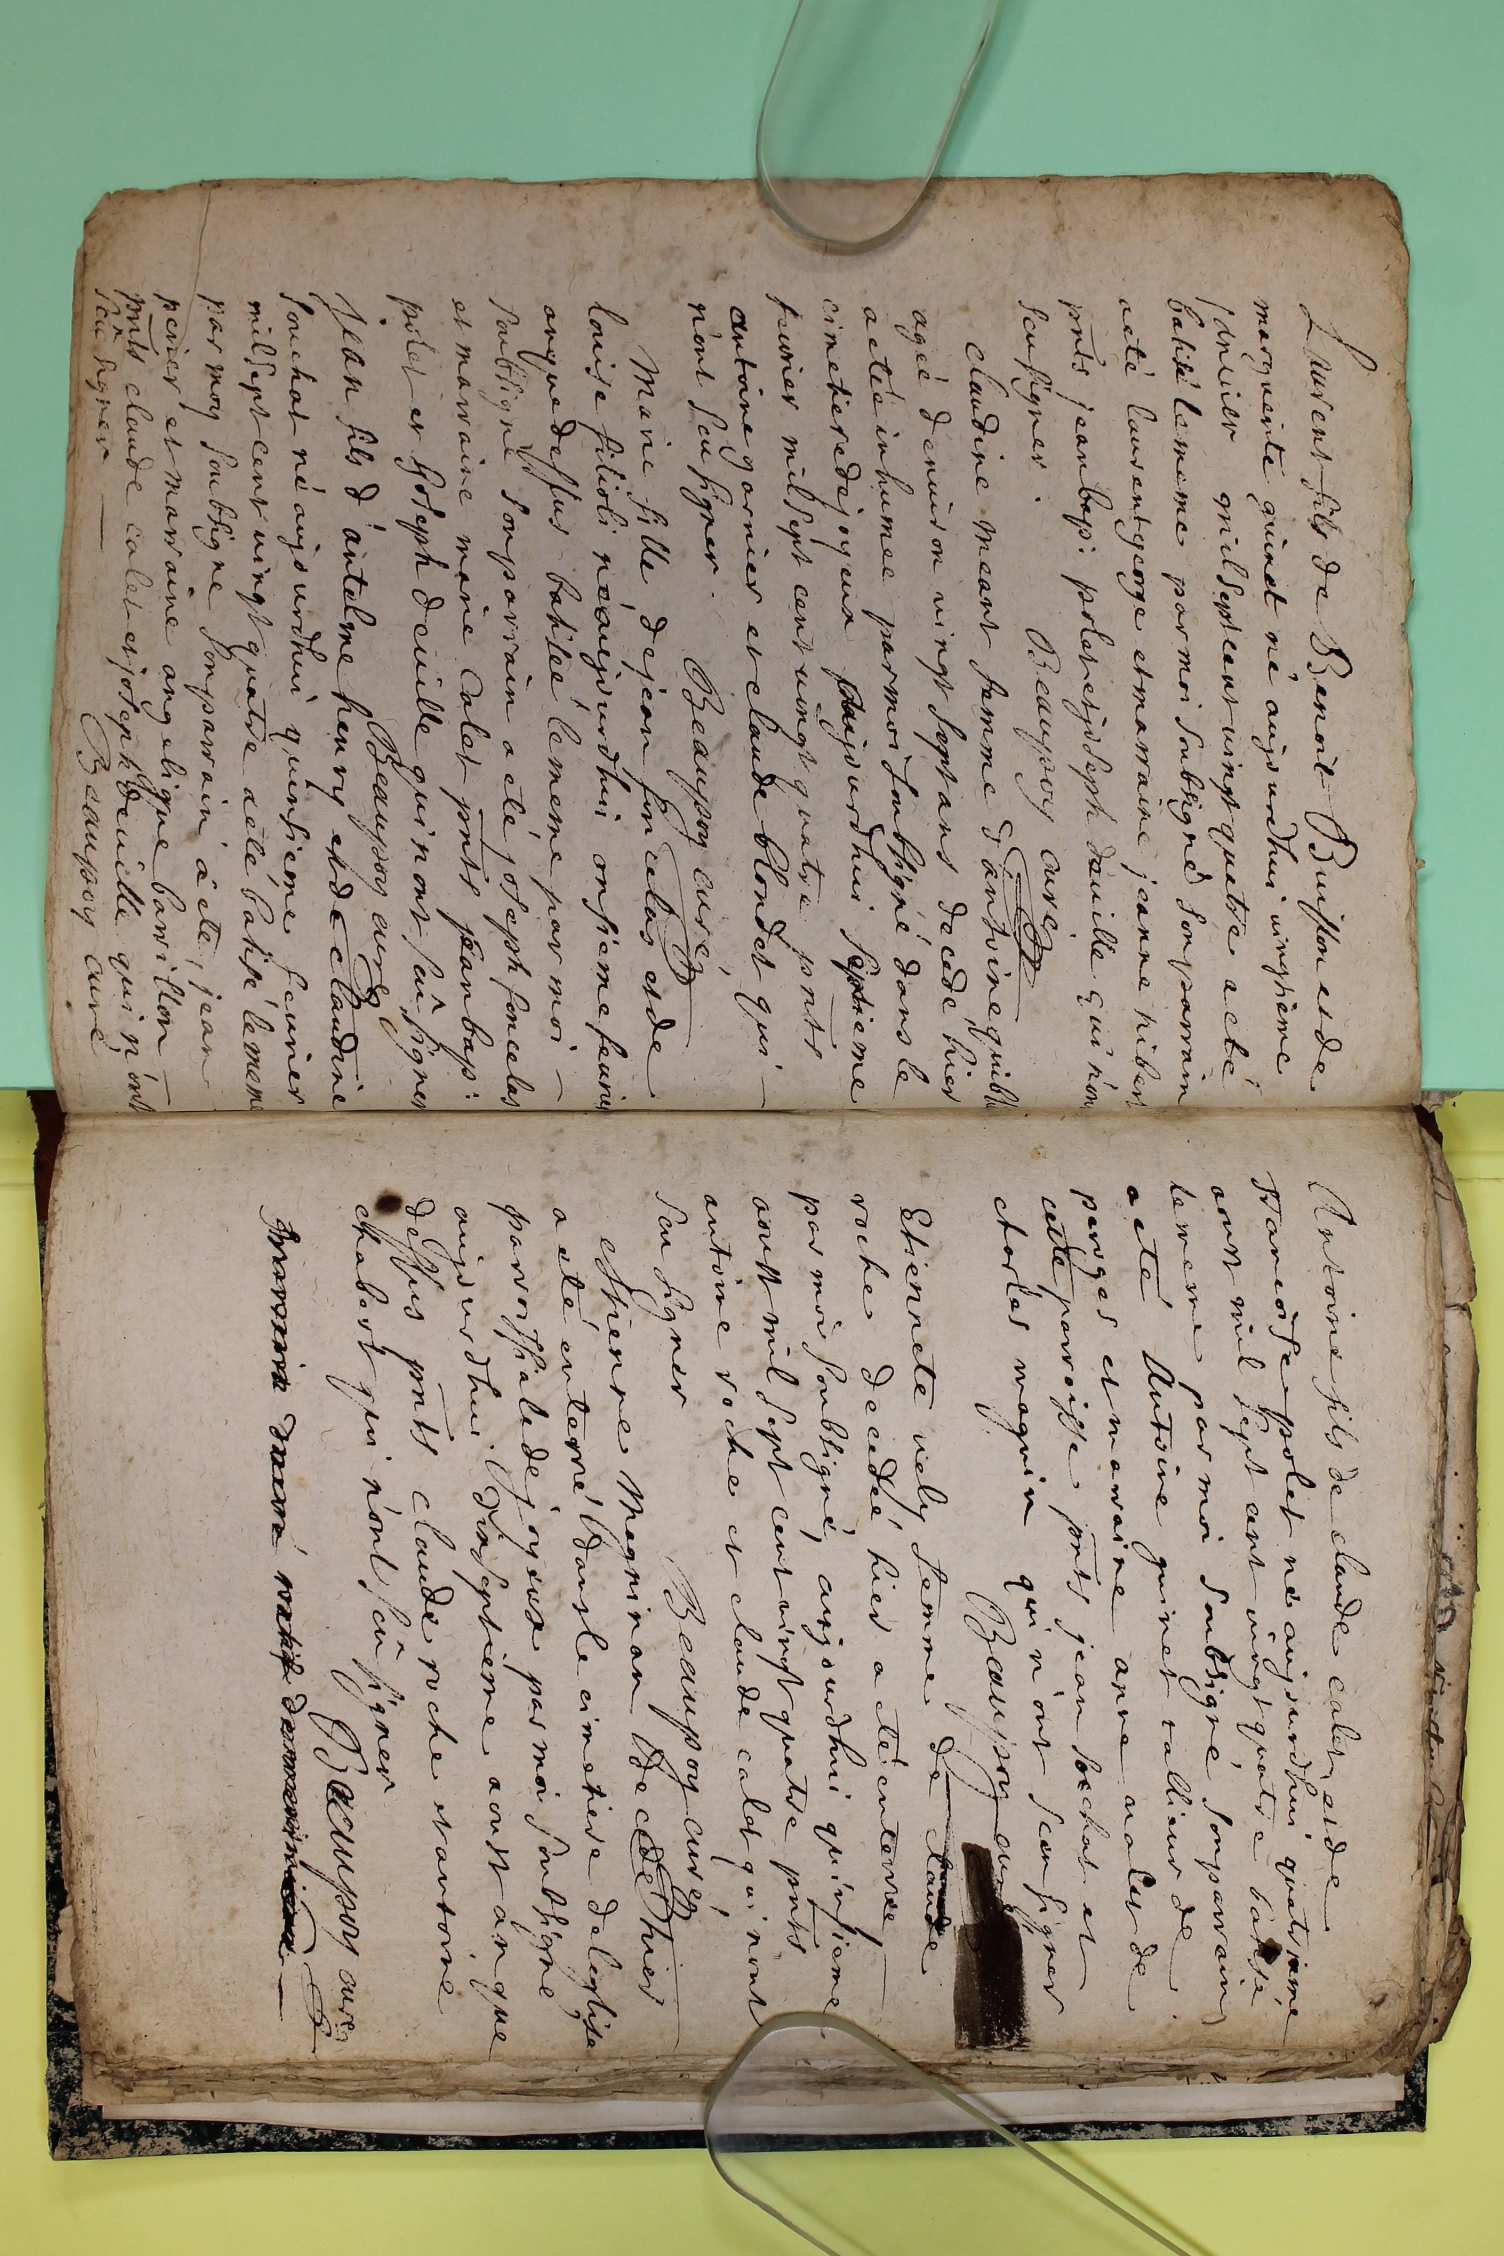 Laurent fils de Benoit Buisson et de
marguerite guinet né aujourdhui vingtieme
janvier mil sept cent vingt quatre a eté
batisé le meme par moi soubsigné son parrain
a eté laurent george et marraine jeanne
pnts jean bap: polet et joseph deuille qui n'ont
sceu signer. Beaupoy curé
claudine meant femme d'antoine
agée denviron vingt sept ans decedé hier
a eté inhumée par moi soubsigné dans le
cimetiere de joyeux aujourdhui septieme
fevrier mil sept cent vingt quatre pnts
antoine garnier et claude blondet qui
n'ont sceu signer. Beaupoy curé
Marie fille de jean foncelas et de
louise filioli née aujourdhui onsieme fevrier
an que dessus batisée le meme par moi
soubsigné son parrain a eté joseph foncelas
et marraine marie calet pnts jean bap:
polet et joseph deuille qui n'ont sceu signer
Beaupoy curé
Jean fils d'antelme henry et de claudine
souchat né aujourdhui quinsieme fevrier
mil sept cent vingt quatre a eté batisé le meme
par moy soubsigne son parrain a eté jean
perier et marraine angelique barrillon
pnts claude calet et joseph deuille qui n'ont
sceu signer Beaupoy curé
Antoine fils de claude calet et de
francoise polet né aujourdhui quatrieme
aoust mil sept cent vingt quatre batisé
le meme par moi soubsigné son parrain
a eté Antoine guinet tallieur de
peroges et marraine anne nalet de
cette parroisse pnts jean sochat et
charles magnin qui n'ont sceu signer
Beaupoy curé
Etiennete vely femme de claude
roche decedée hier a eté enterrée
par moi soubsigné aujourdhui quinsieme
aoust mil sept cent vingt quatre pnts
antoine roche et claude calet qui n'ont
sceu signer Beaupoy curé
Etienne Magninan decedé hier
a eté enterré dans le cimetiere de leglise
parroissiale de joyeux par moi soubsigne
aujourdhui dixseptieme aoust an que
dessus pnts claude roche et antoine
chabert qui n'ont sceu signer
Beaupoy curé